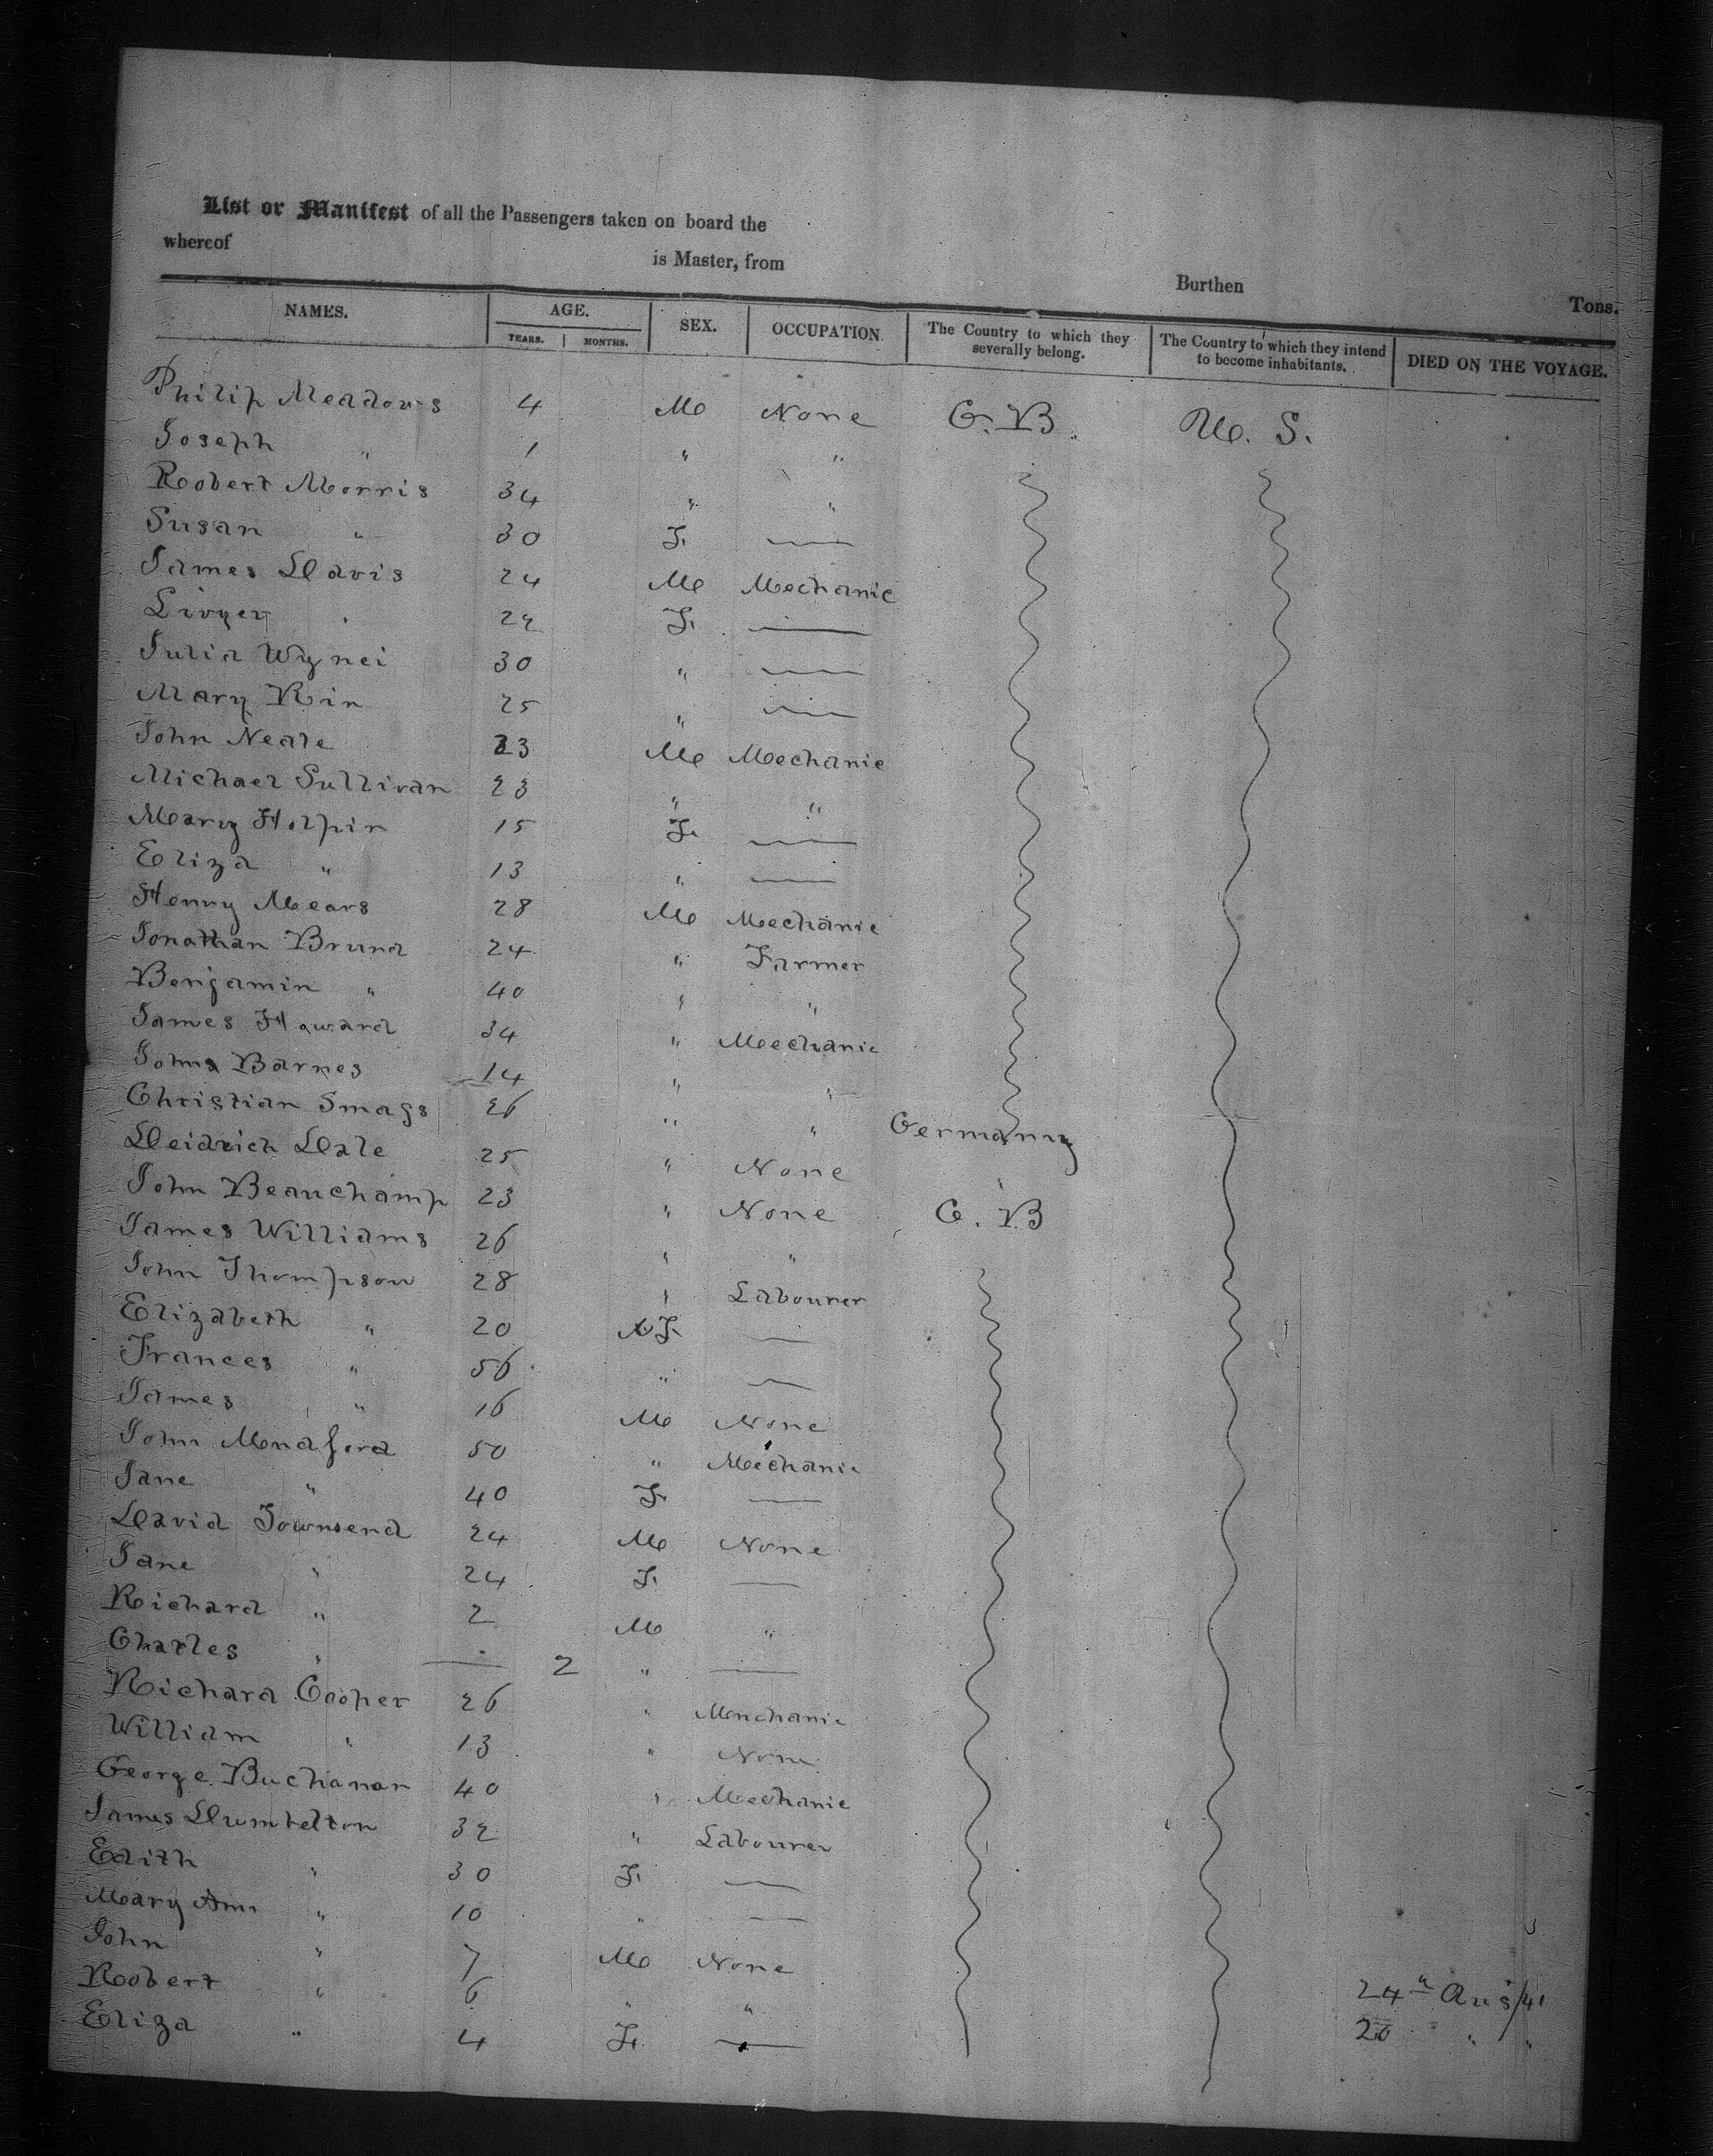 List or Manifest of all the Passengers taken on board the
whereof is Master, from Burthen Tons.
NAMES. AGE. YEARS. MONTHS. SEX. OCCUPATION The Country to which they severally belong. The Country to which they intend to become inhabitants. DIED ON THE VOYAGE.
Philip Meadows 4 M None G. B. U. S.
Joseph " 1 " "
Robert Morris 34 " "
Susan " 30 F. —
James Davis 24 M Mechanic
" 22 F. —
Julia 30 " —
Mary 25 " —
John Neale 23 M Mechanic
Michael Sullivan 23 " "
Mary Holpin 15 F. —
Eliza " 13 " —
Henry Mears 28 M Mechanic
Jonathan Brund 24 " Farmer
Benjamin " 40 " "
James Howard 34 " Mechanic
John Barnes 14 " "
Christian 26 " " Germany
Deidrich Dale 25 " None "
John Beauchamp 23 " None G. B
James Williams 26 " "
John Thompson 28 " Labourer
Elizabeth " 20 F. —
Frances " 56 " —
James " 16 M None
John Mudford 50 " Mechanic
Jane " 40 F. —
David Townsend 24 M None
Jane " 24 F. —
Richard " 2 M "
Charles " — 2 " —
Richard Cooper 26 " Mechanic
William " 13 " None
George Buchanan 40 " Mechanic
James Dumbelton 32 " Labourer
Edith " 30 F. —
Mary Ann " 10 " —
John " 7 M None
Robert " 6 " " 24th Aug/41
Eliza " 4 F. — 26 " "